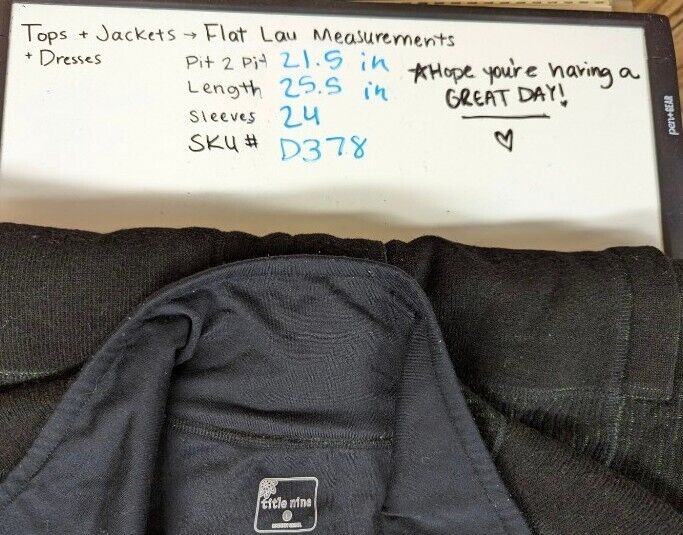 Tops + Jackets → Flat Lau Measurements
+ Dresses
Pit 2 Pit 21.5 in
Length 25.5 in
Sleeves 24
SKU # D378
*Hope you're having a
GREAT DAY!
pen+GEAR
title nine